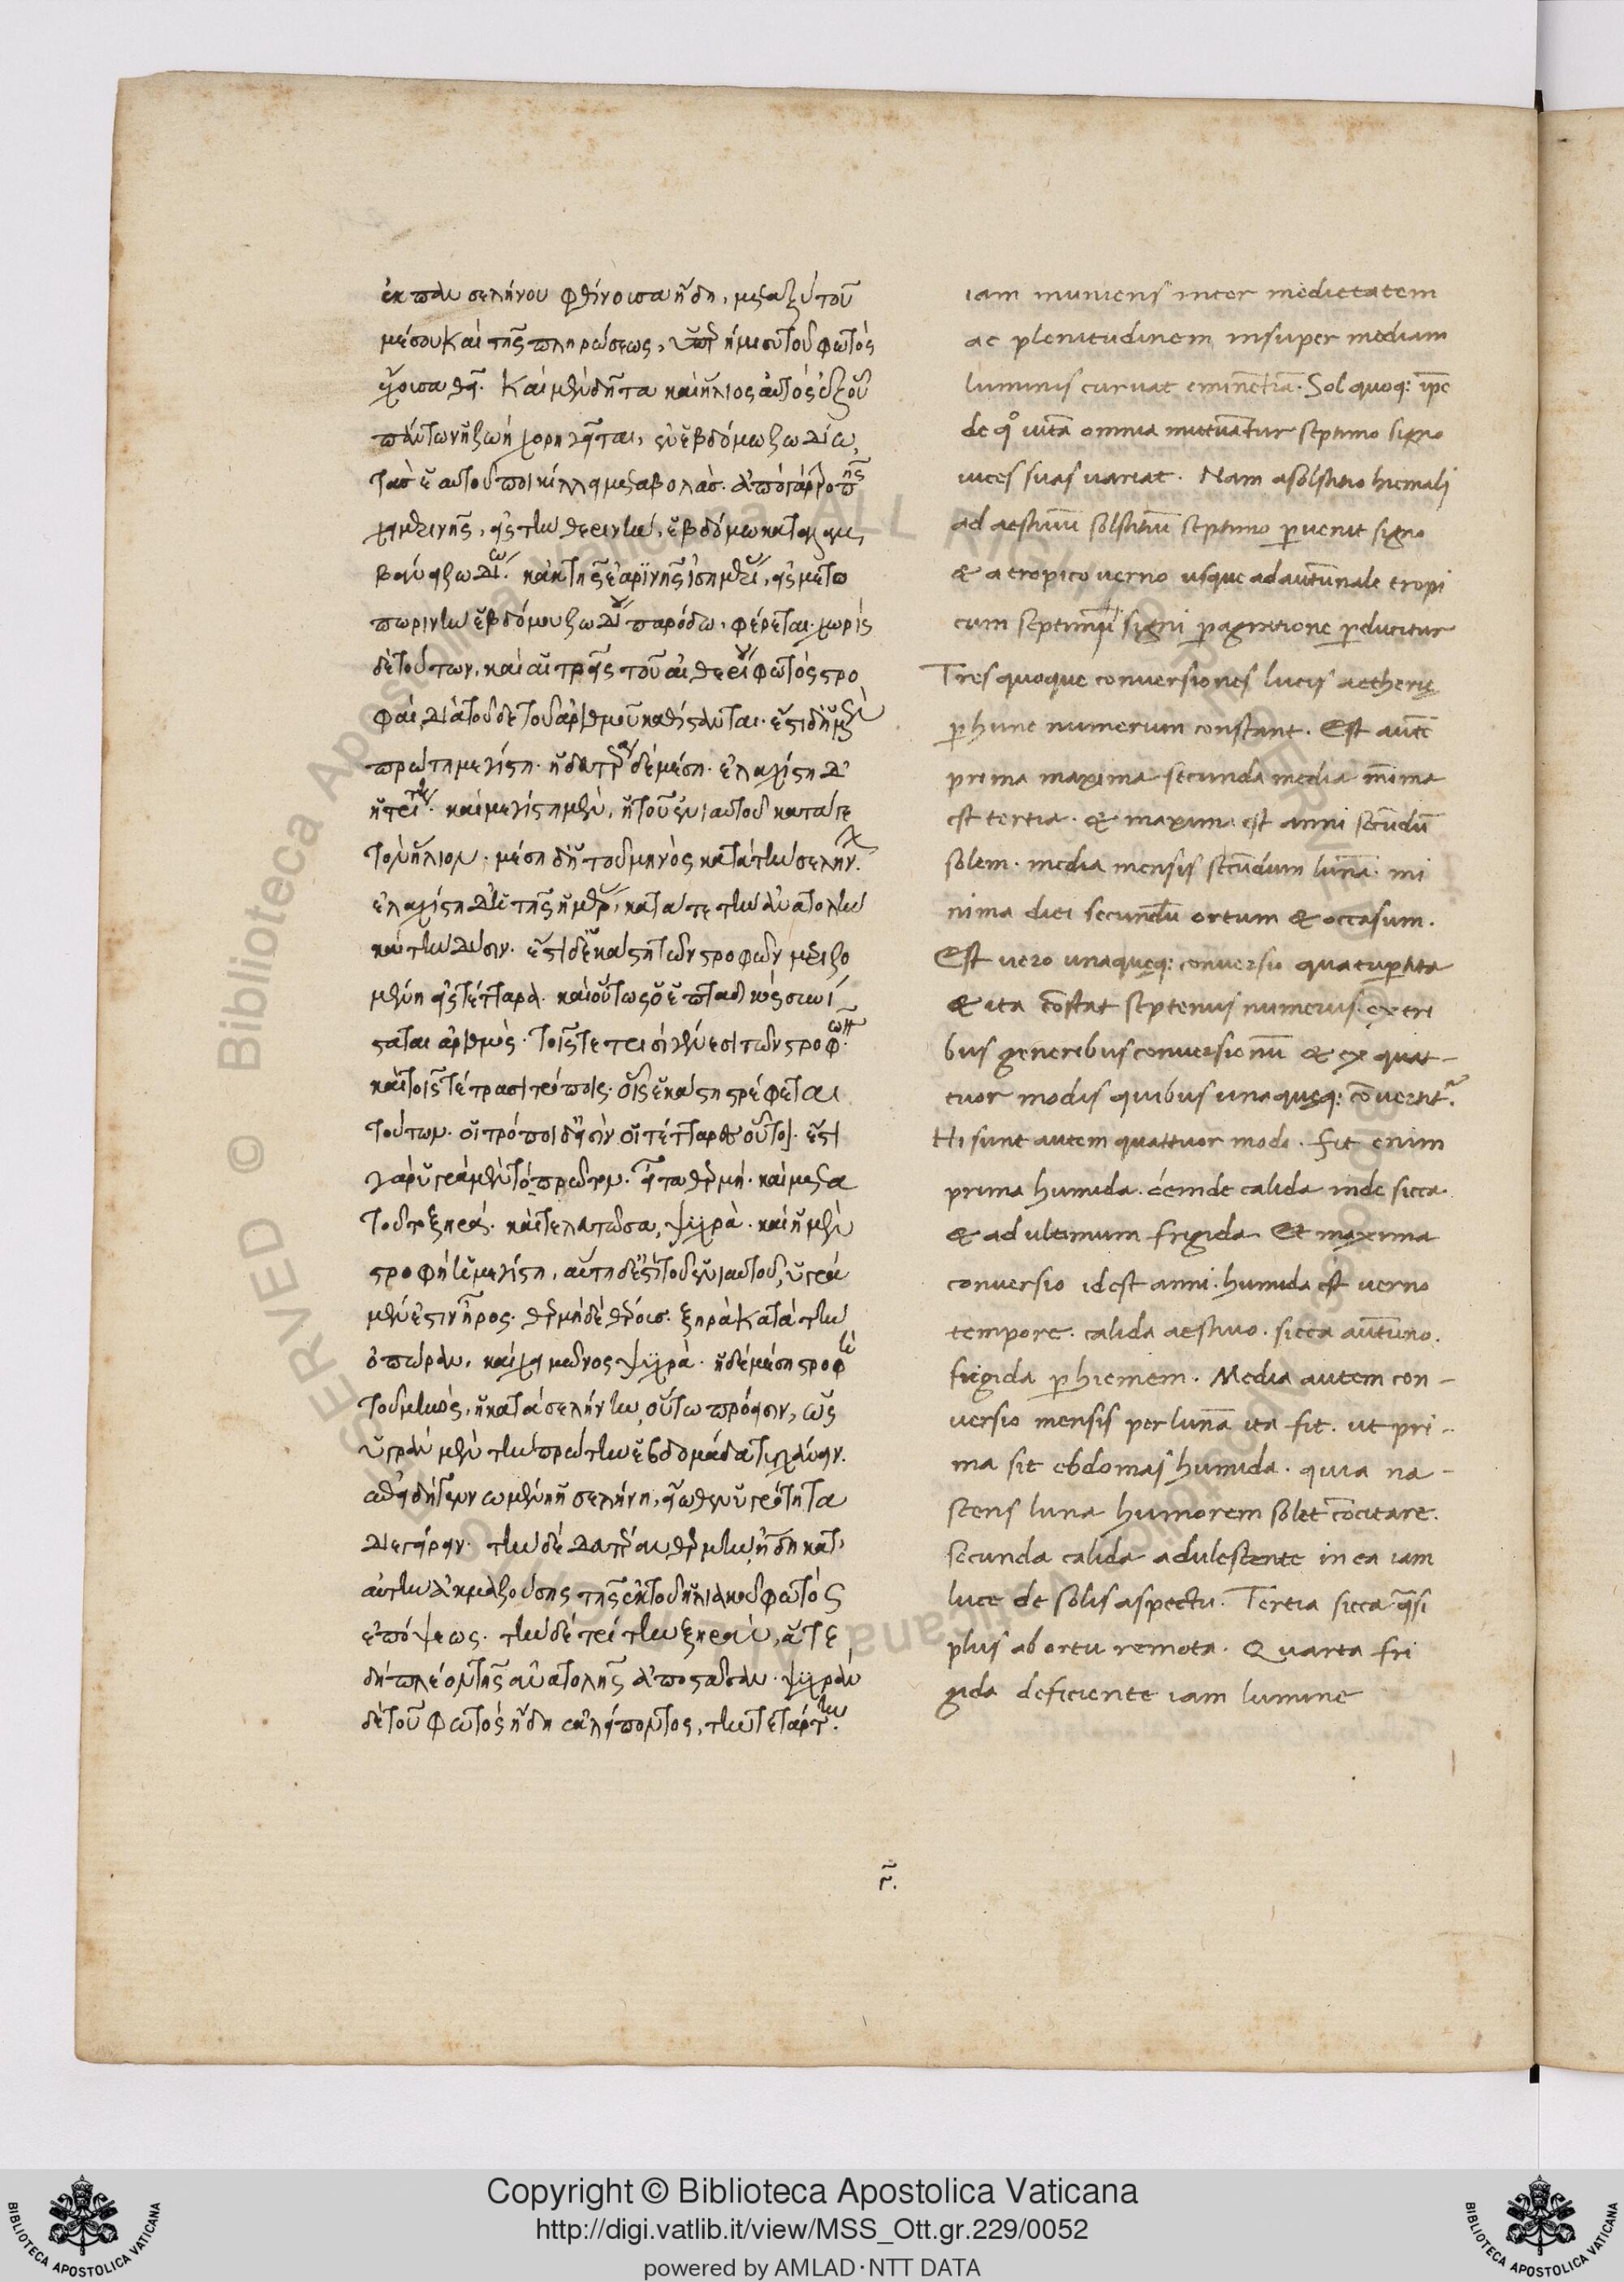 ἐκ παν σελήνου φθίνουσα ἤδη, μεταξὺ τοῦ
μέσου καὶ τῆς πληρώσεως, ὑπὲρ ἥμισυ τοῦ φωτὸς
καὶ μὲν δῆτα καὶ ἥλιος αὐτὸς ἐξ οὗ
πάντων ἡ ζωὴ χορηγεῖται, ἐν ἑβδόμω ζωδίω,
τὰς ἑαυτοῦ ποικίλλει μεταβολάς. ἀπὸ γὰρ τροπῆς
χειμερινῆς, εἰς τὴν θερινὴν, ἑβδόμω
ζωδίω. κἀκ τῆς ἐαρινῆς ἰσημερί, εἰς μετο
πωρινὴν ἑβδόμου ζωδίου παρόδω, φέρεται. χωρὶς
δὲ τούτων, καὶ αἱ τρεῖς τοῦ αἰθερίου φωτὸς στρο
φαὶ, διὰ τοῦδε τοῦ ἀριθμοῦ καθίστανται. ἔστι δὴ ἡ μὲν
πρώτη μεγίστη. ἡ δευτέρα δὲ μέση. ἐλαχίστη δ'
ἡ τρίτη. καὶ μεγίστη μὲν, ἡ τοῦ ἐνιαυτοῦ κατά γε
τὸν ἥλιον. μέση δ' ἡ τοῦ μηνὸς κατὰ τὴν σελήν.
ἐλαχίστη δ' ἡ τῆς ἡμέρ, κατά τε τὴν ἀνατολὴν
καὶ τὴν δύσιν. ἔστι δ' ἑκάστη τῶν στροφῶν μεριζο
μένη εἰς τέτταρα. καὶ οὕτως ὁ ἑπταδικὸς συνί
σταται ἀριθμὸς. τοῖς τε τρισὶ γένεσι τῶν στροφῶν.
καὶ τοῖς τέτρασι τρόποις. οἷς ἑκάστη στρέφεται
τούτων. οἱ τρόποι δ' εἰσὶν οἱ τέτταρες οὗτοι. ἔστι
γὰρ ὑγρὰ μὲν τὸ πρῶτον. εἶτα θερμή. καὶ μετὰ
τοῦτο ξηρά. καὶ τελευτῶσα, ψυχρὰ. καὶ ἡ μὲν
στροφὴ ἡ μεγίστη, αὕτη δ' ἔστιν ἡ τοῦ ἐνιαυτοῦ, ὑγρὰ
μέν ἐστιν ἦρος. θερμὴ δὲ θέρους. ξηρὰ κατὰ τὴν
ὀπώραν. καὶ χειμῶνος ψυχρὰ. ἡ δὲ μέση στροφὴ
τοῦ μηνὸς, ἡ κατὰ σελήνην, οὕτω πρόεισιν, ὡς
ὑγρὰν μὲν τὴν πρώτην ἑβδομάδα τυγχάνειν.
ἅτε δὴ γεννωμένη ἡ σελήνη, εἴωθεν ὑγρότητα
διεγείρειν. τὴν δὲ δευτέραν θερμὴν, ἤδη κατ'
αὐτὴν ἀκμαζούσης τῆς ἐκ τοῦ ἡλιακοῦ φωτὸς
ἐπόψεως. τὴν δὲ τρίτην ξηρὰν, ἅτε
δὴ πλέον τῆς ἀνατολῆς ἀποστᾶσαν. ψυχρὰν
δὲ τοῦ φωτὸς ἤδη ἐκλείποντος, τὴν τετάρτην.
iam muniens inter medietatem
ac plenitudinem insuper mediam
luminis curvat eminentiā. Sol quoq: ipse
de qo vitā omnia mutuantur septimo signo
vices suas variat. Nam a solstitio hiemali
ad aestivū solstitiū septimo pervenit signo
& a tropico verno usque ad autūnale tropi
cum septimū signi pagratione perducitur
Tres quoque conversiones lucis aetherię
p hunc numerum constant. Est autē
prima maxima secunda media minima
est tertia. & maxima est anni secūdū
solem. media mensis secundum lunā. mi
nima diei secundū ortum & occasum.
Est vero unaquęq: conversio quatuptita
& ita cōstat septenus numerus. ex tri
bus generibus conversionū & ex quat-
tuor modis quibus unaquęq: cōvertit.
Hi sunt autem quattuor modi. fit enim
prima humida. deinde calida inde sicca.
& ad ultimum frigida Et maxima
conversio id est anni. humida est verno
tempore. calida aestivo. sicca autūno.
frigida p hiemem. Media autem con-
versio mensis per lunā ita fit. ut pri-
ma sit ebdomas humida. quia na-
scens luna humorem solet cōcitare.
secunda calida adulescente in ea iam
luce de solis aspectu. Tertia sicca q̄si
plus ab ortu remota. Quarta fri
gida deficiente iam lumine
Copyright © Biblioteca Apostolica Vaticana
http://digi.vatlib.it/view/MSS_Ott.gr.229/0052
powered by AMLAD·NTT DATA
BIBLIOTECA APOSTOLICA VATICANA
BIBLIOTECA APOSTOLICA VATICANA